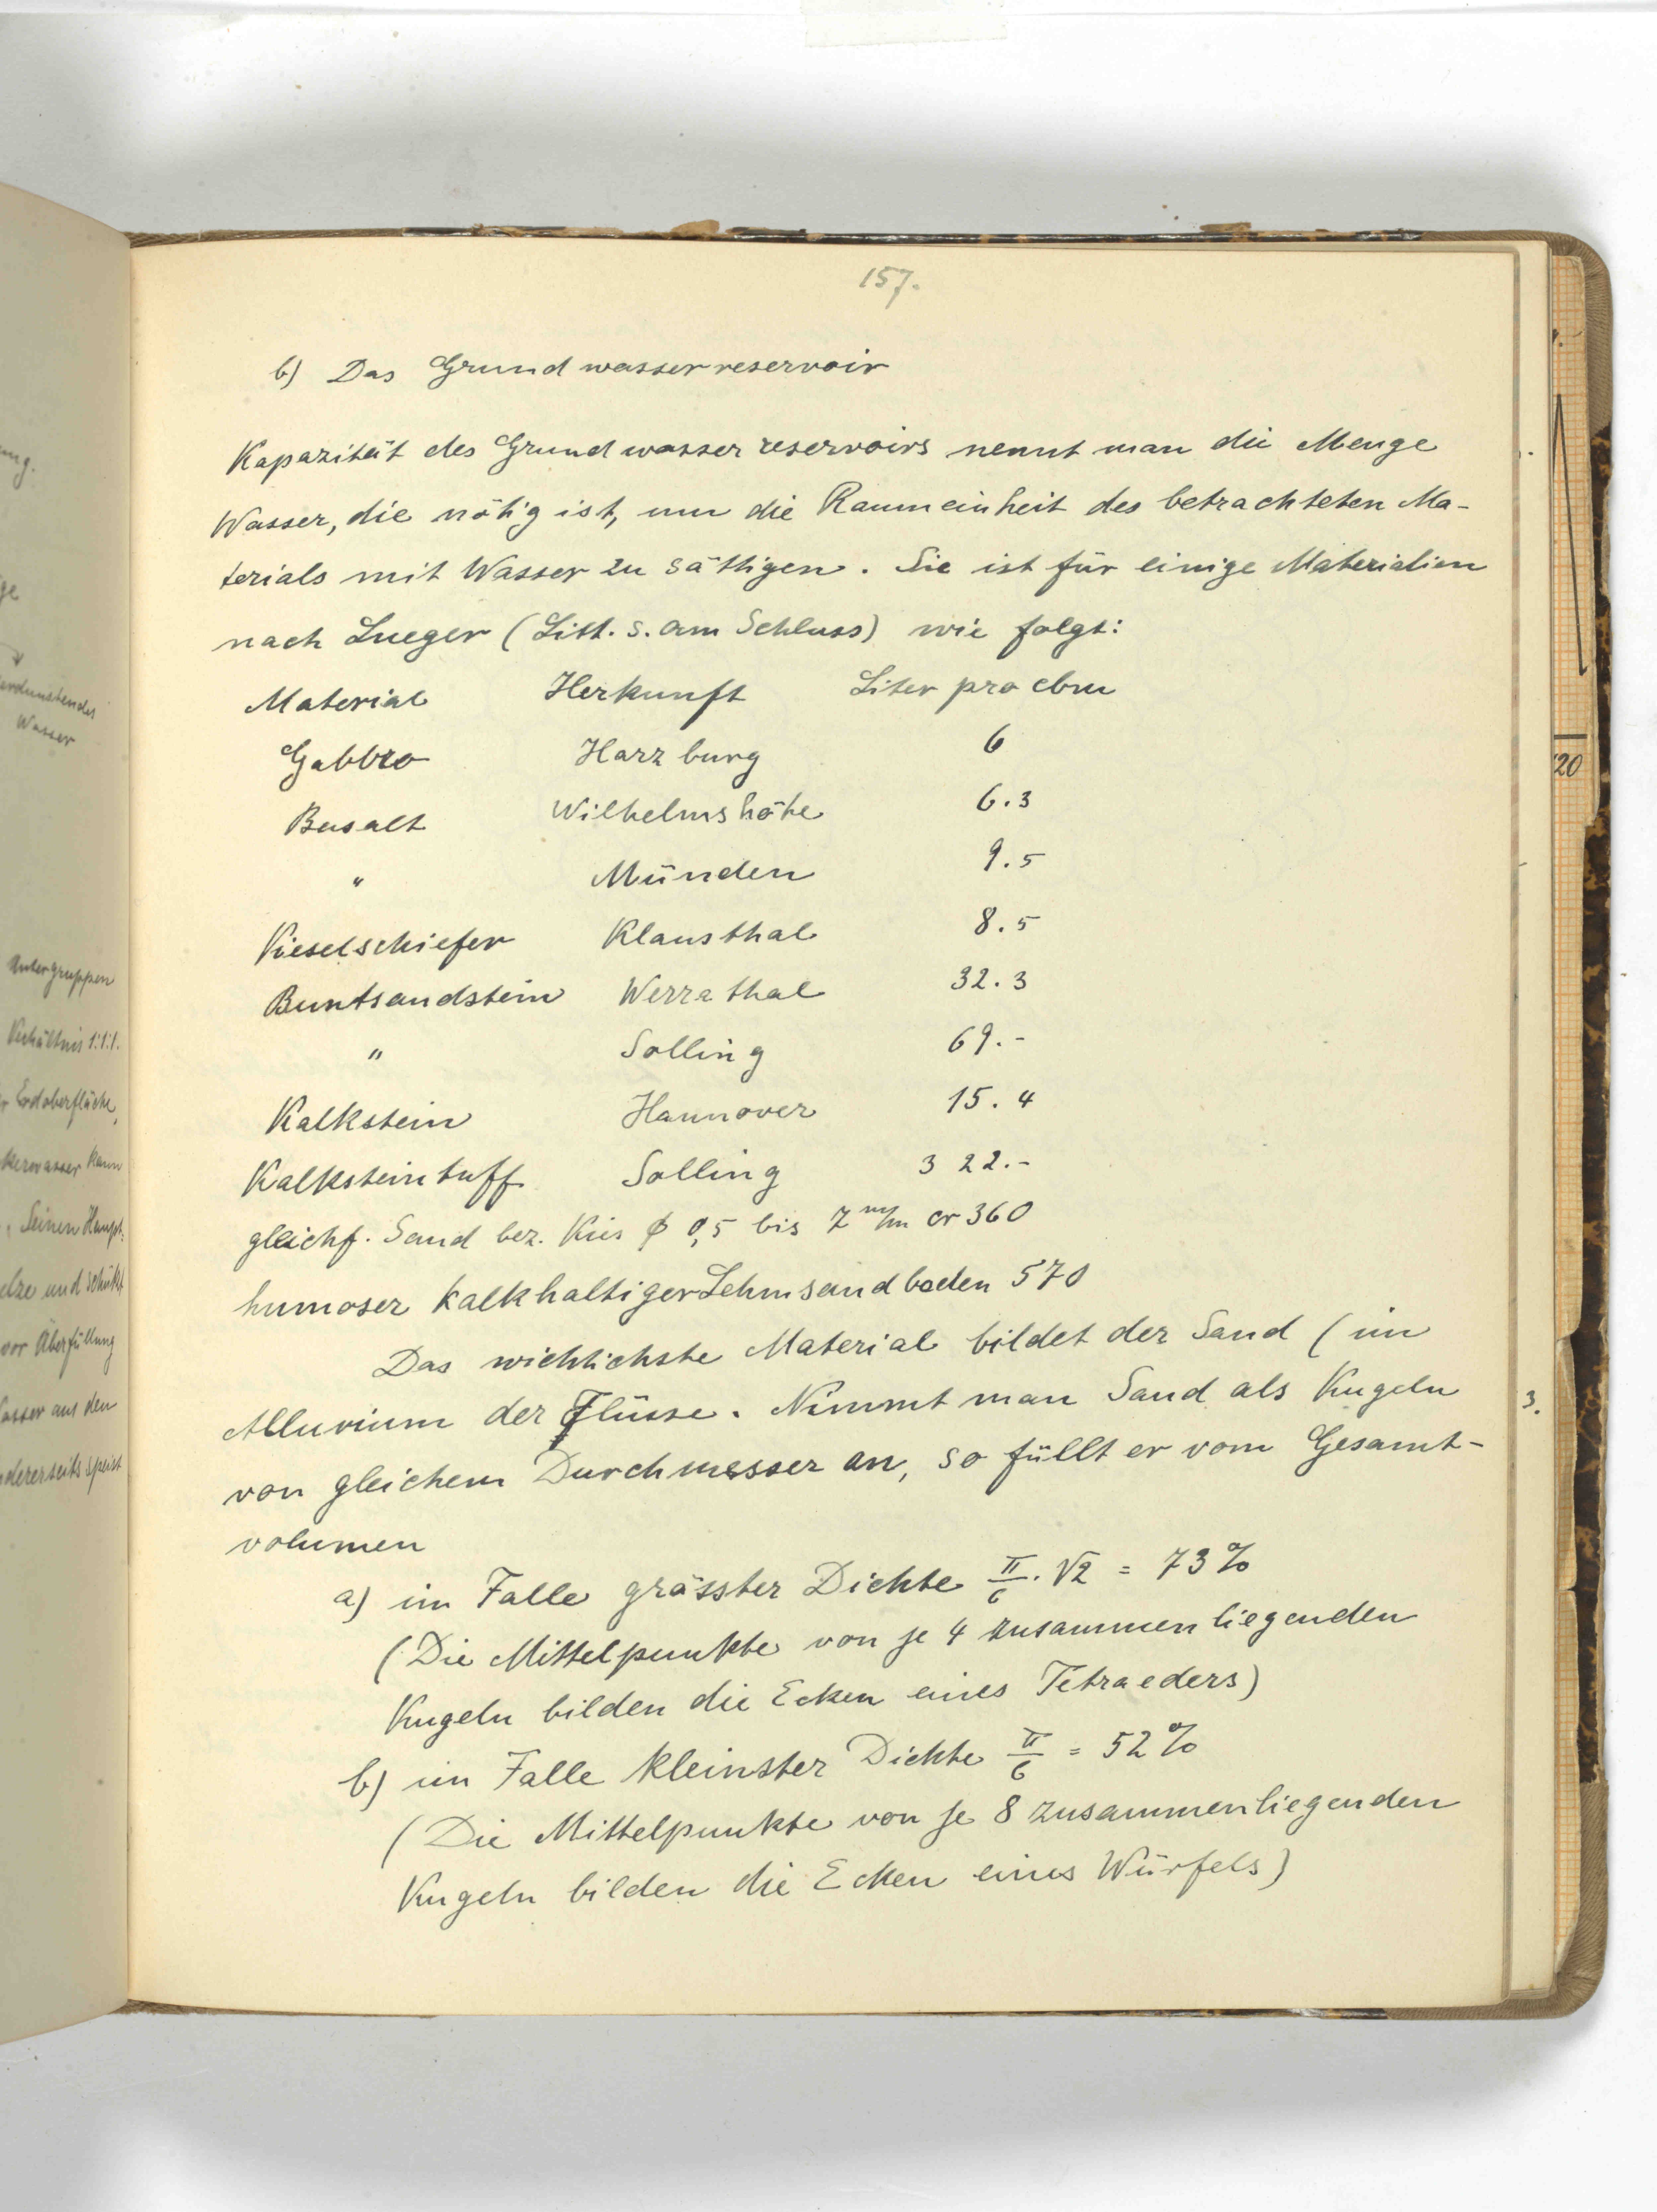 157.
b) Das Grundwasserreservoir
Kapazität des Grundwasserreservoirs nennt man die Menge
Wasser, die nötig ist, um die Raumeinheit des betrachteten Ma-
terials mit Wasser zu sättigen. Sie ist für einige Materialien
nach Lueger (Litt. s. am Schluss) wie folgt:
Material Herkunft Liter pro cbm
Gabbro Harzburg 6
Basalt Wilhelmshöhe 6.3
" Münden 9.5
Kieselschiefer Klausthal 8.5
Buntsandstein Werrathal 32.3
" Solling 69.-
Kalkstein Hannover 15.4
Kalksteintuff Solling 322.-
gleichf. Sand bez. Kies ϕ 0,5 bis 7 m/m cr 360
humoser kalkhaltiger Lehmsandboden 570
Das wichtichste Material bildet der Sand (im
Alluvium der Flüsse. Nimmt man Sand als Kugeln
von gleichem Durchmesser an, so füllt er vom Gesamt-
volumen
a) im Falle grösster Dichte π/6 · √2 = 73 %
(Die Mittelpunkte von je 4 zusammenliegenden
Kugeln bilden die Ecken eines Tetraeders)
b) im Falle kleinster Dichte π/6 = 52 %
(Die Mittelpunkte von je 8 zusammenliegenden
Kugeln bilden die Ecken eines Würfels)
ng.
ge
erdunstendes
Wasser
Untergruppen
Verhältnis 1:1:1.
r Erdoberfläche,
kerwasser kann
Seinen Haupt-
elze und schützt
vor Überfüllung
asser aus den
dererseits speist
20
3.